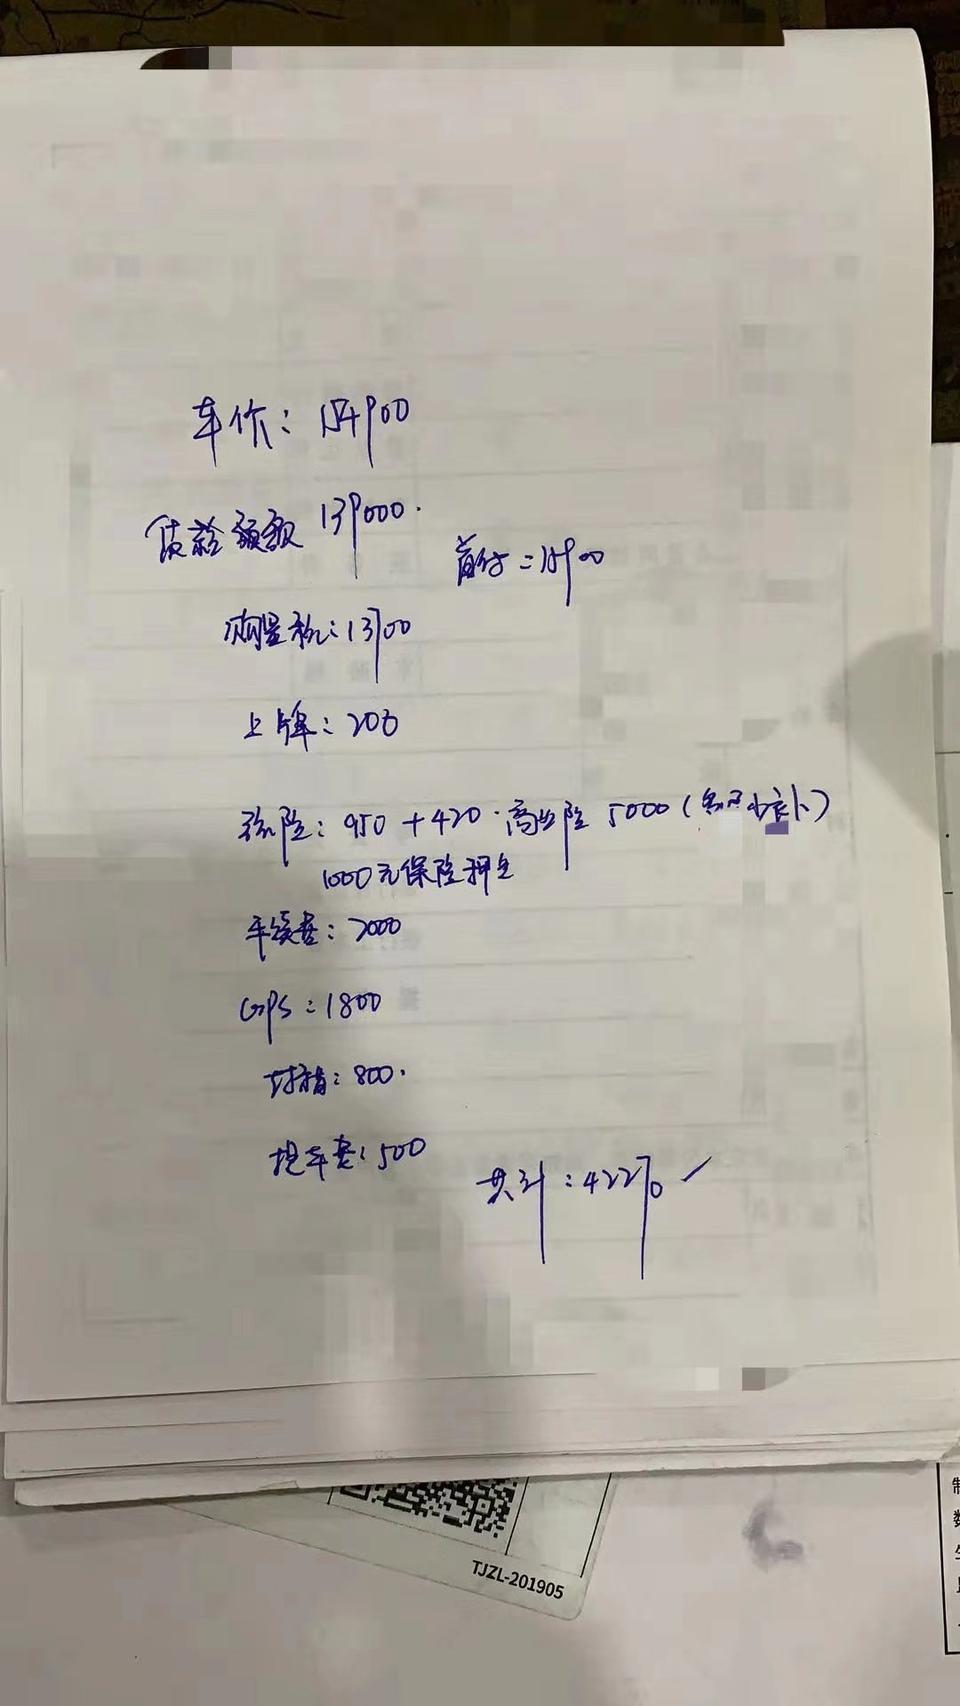 车价：154900
贷款额额 139000.
首付：15900
购置税：13700
上牌：200
强险：950+420.商业险 5000（多退少补）
1000元保险押金
手续费：2000
GPS：1800
800.
提车费：500
共计：42270
TJZL-201905
制
数